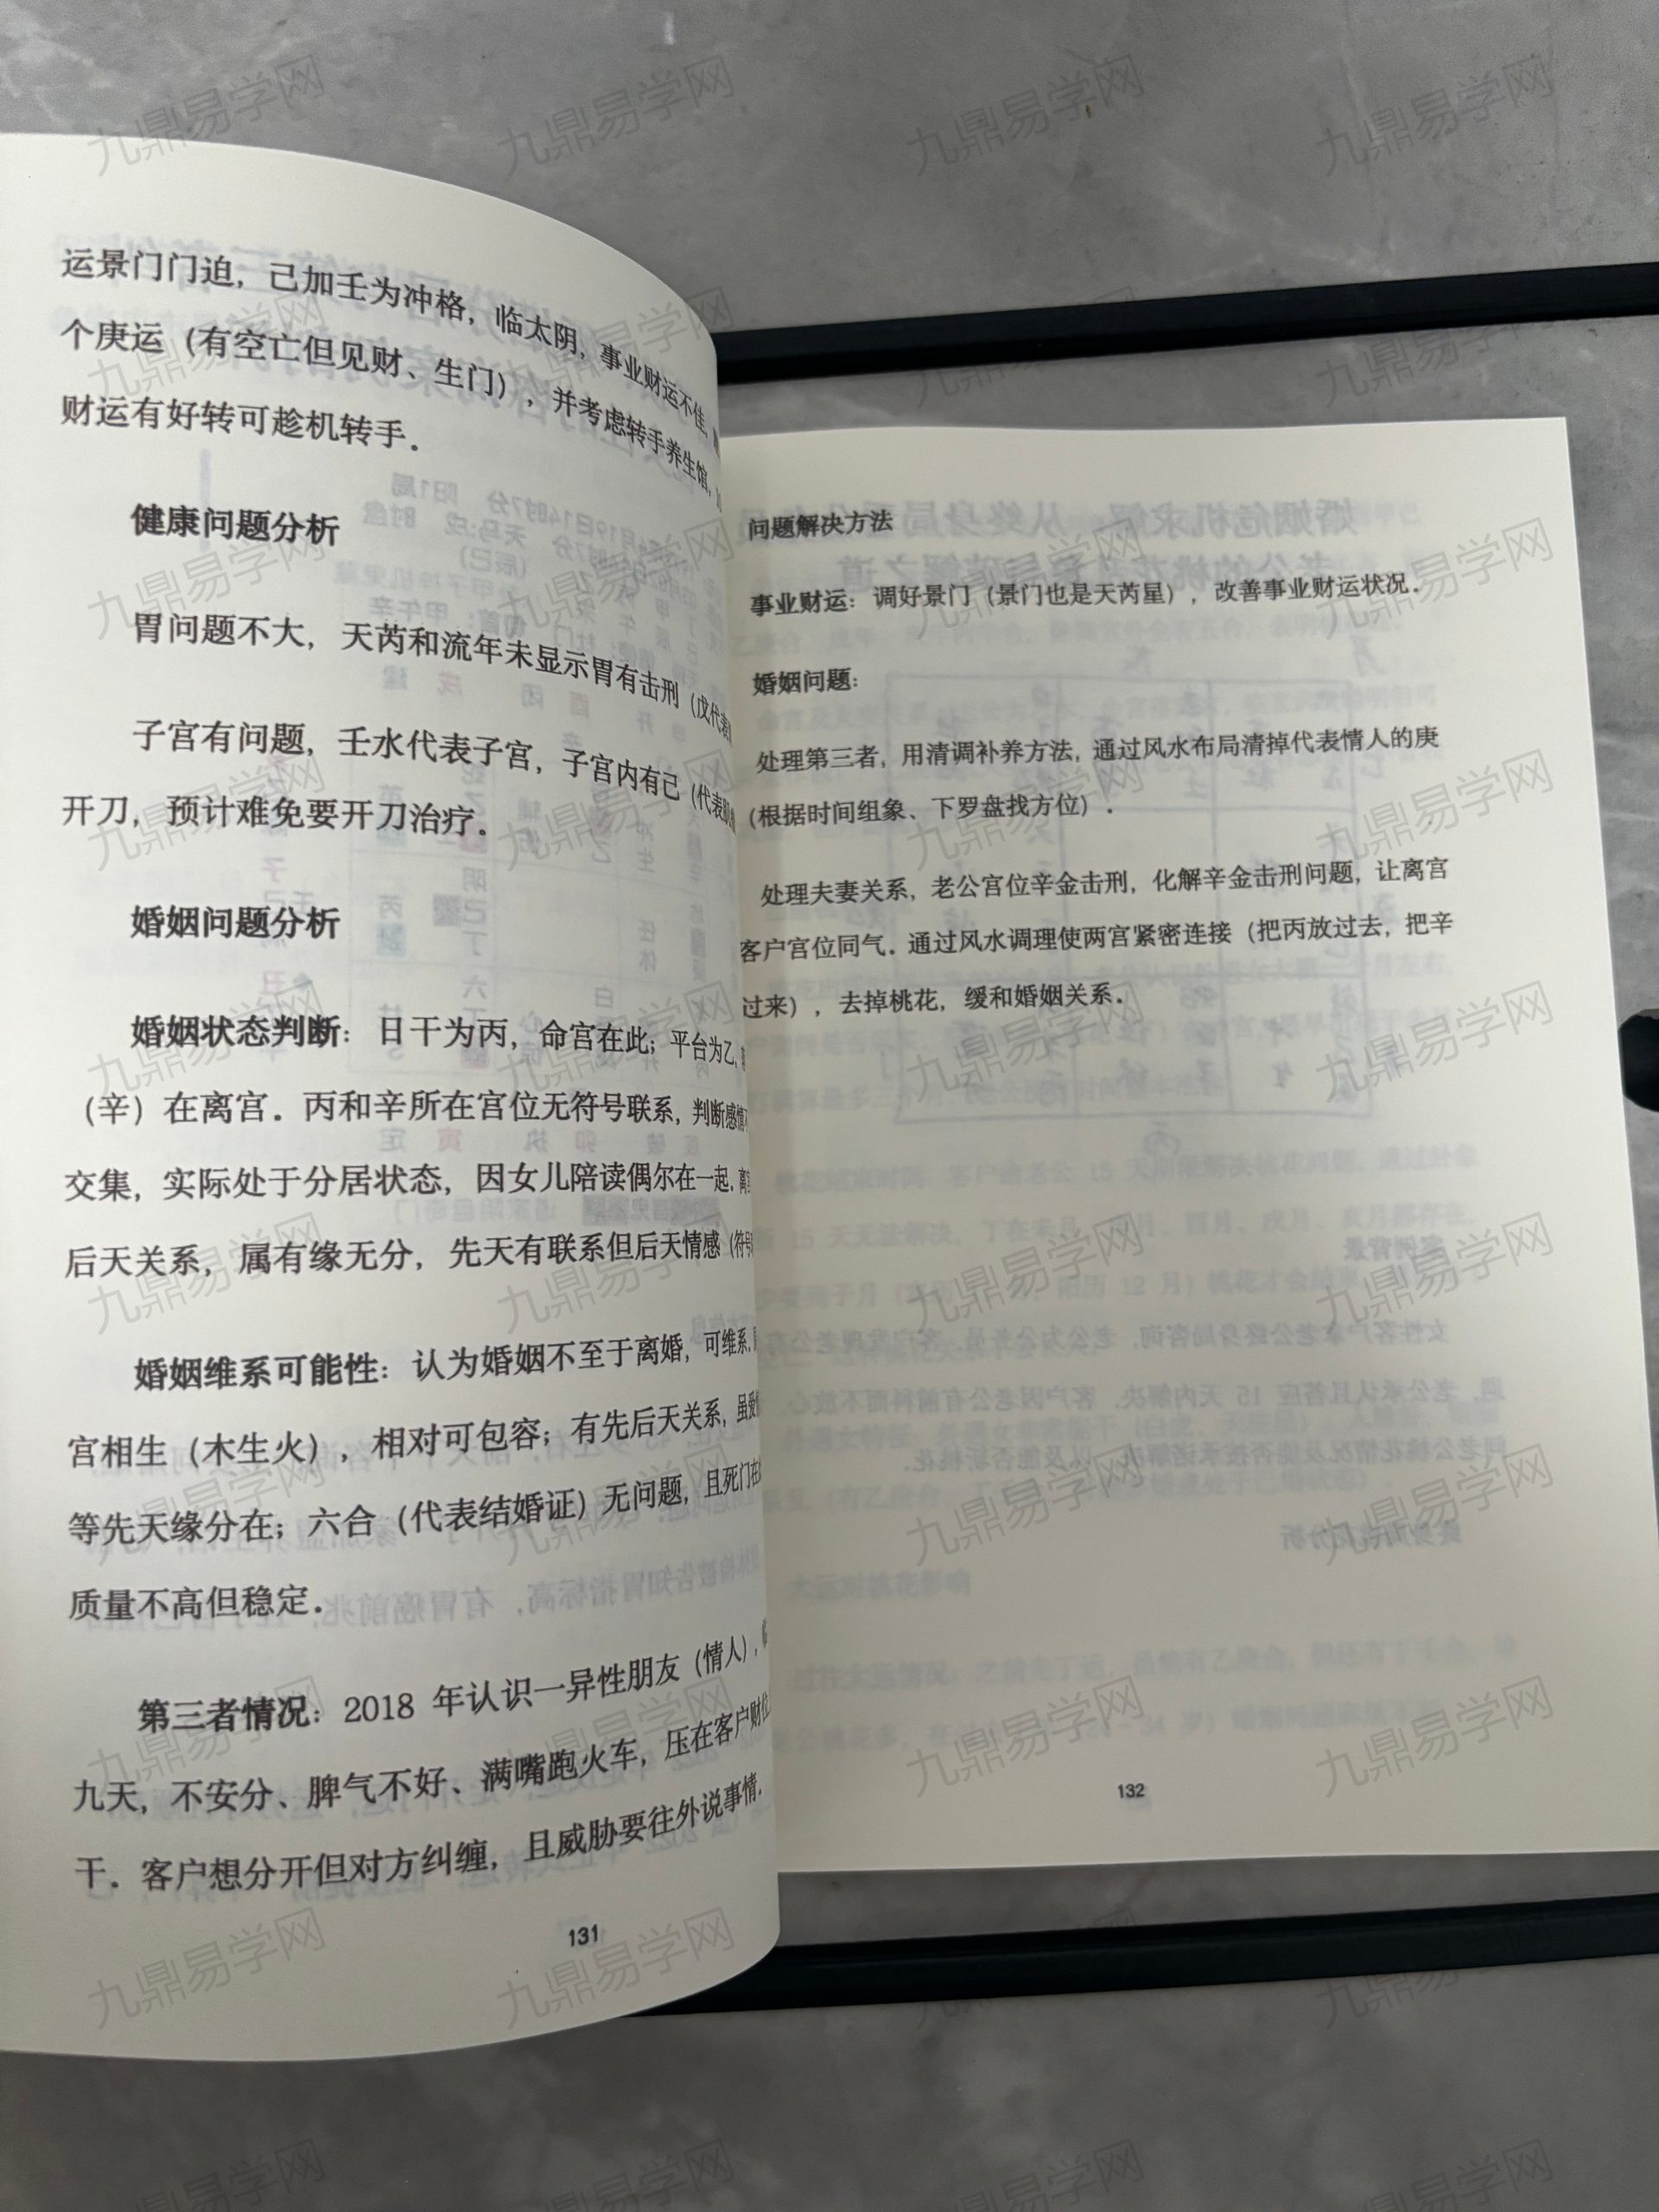 运景门门迫，己加壬为冲格，临太阴，事业财运不佳，
个庚运（有空亡但见财、生门），并考虑转手养生馆，
财运有好转可趁机转手．
健康问题分析
胃问题不大，天芮和流年未显示胃有击刑（戊代表
子宫有问题，壬水代表子宫，子宫内有己（代表
开刀，预计难免要开刀治疗．
婚姻问题分析
婚姻状态判断：日干为丙，命宫在此；平台为乙，
（辛）在离宫．丙和辛所在宫位无符号联系，判断感情
交集，实际处于分居状态，因女儿陪读偶尔在一起．
后天关系，属有缘无分，先天有联系但后天情感（符号
婚姻维系可能性：认为婚姻不至于离婚，可维系，
宫相生（木生火），相对可包容；有先后天关系，虽
等先天缘分在；六合（代表结婚证）无问题，且死门在
质量不高但稳定．
第三者情况：2018 年认识一异性朋友（情人），
九天，不安分、脾气不好、满嘴跑火车，压在客户财位
干．客户想分开但对方纠缠，且威胁要往外说事情．
131
问题解决方法
事业财运：调好景门（景门也是天芮星），改善事业财运状况．
婚姻问题：
处理第三者，用清调补养方法，通过风水布局清掉代表情人的庚
（根据时间组象、下罗盘找方位）．
处理夫妻关系，老公宫位辛金击刑，化解辛金击刑问题，让离宫
客户宫位同气．通过风水调理使两宫紧密连接（把丙放过去，把辛
过来），去掉桃花，缓和婚姻关系．
132
九鼎易学网